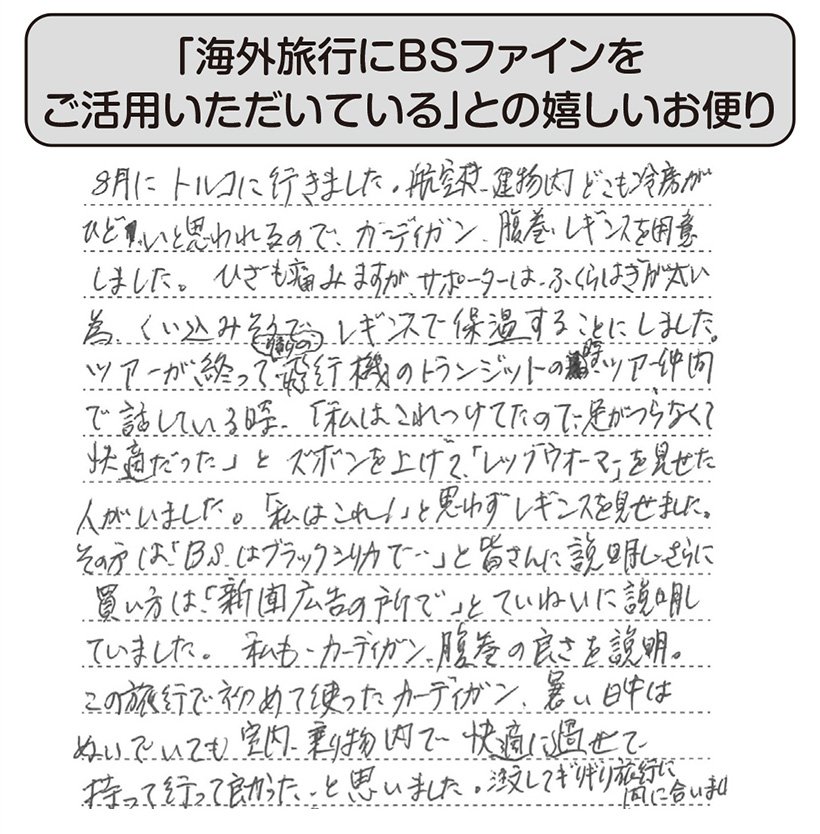 「海外旅行にBSファインを
ご活用いただいている」との嬉しいお便り
8月にトルコに行きました。航空機、建物内どこも冷房が
ひどいと思われるので、カーディガン、腹巻、レギンスを用意
しました。ひざも痛みますが、サポーターは、ふくらはぎが太い
為、くい込みそうで、レギンスで保温することにしました。
ツアーが終って帰りの飛行機のトランジットの時ツアー仲間
で話している時、「私はこれつけてたので、足がつらなくて
快適だった」とズボンを上げて、「レッグウォーマー」を見せた
人がいました。「私はこれ!」と思わずレギンスを見せました。
その方は、「BSはブラックシリカで‥」と皆さんに説明し、さらに
買い方は、「新聞広告の所で」とていねいに説明し
ていました。私も、カーディガン、腹巻の良さを説明。
この旅行で初めて使ったカーディガン、暑い日中は
ぬいでいても室内、乗り物内で快適に過せて、
持って行って良かった、と思いました。注文してぎりぎり旅行に
間に合いました